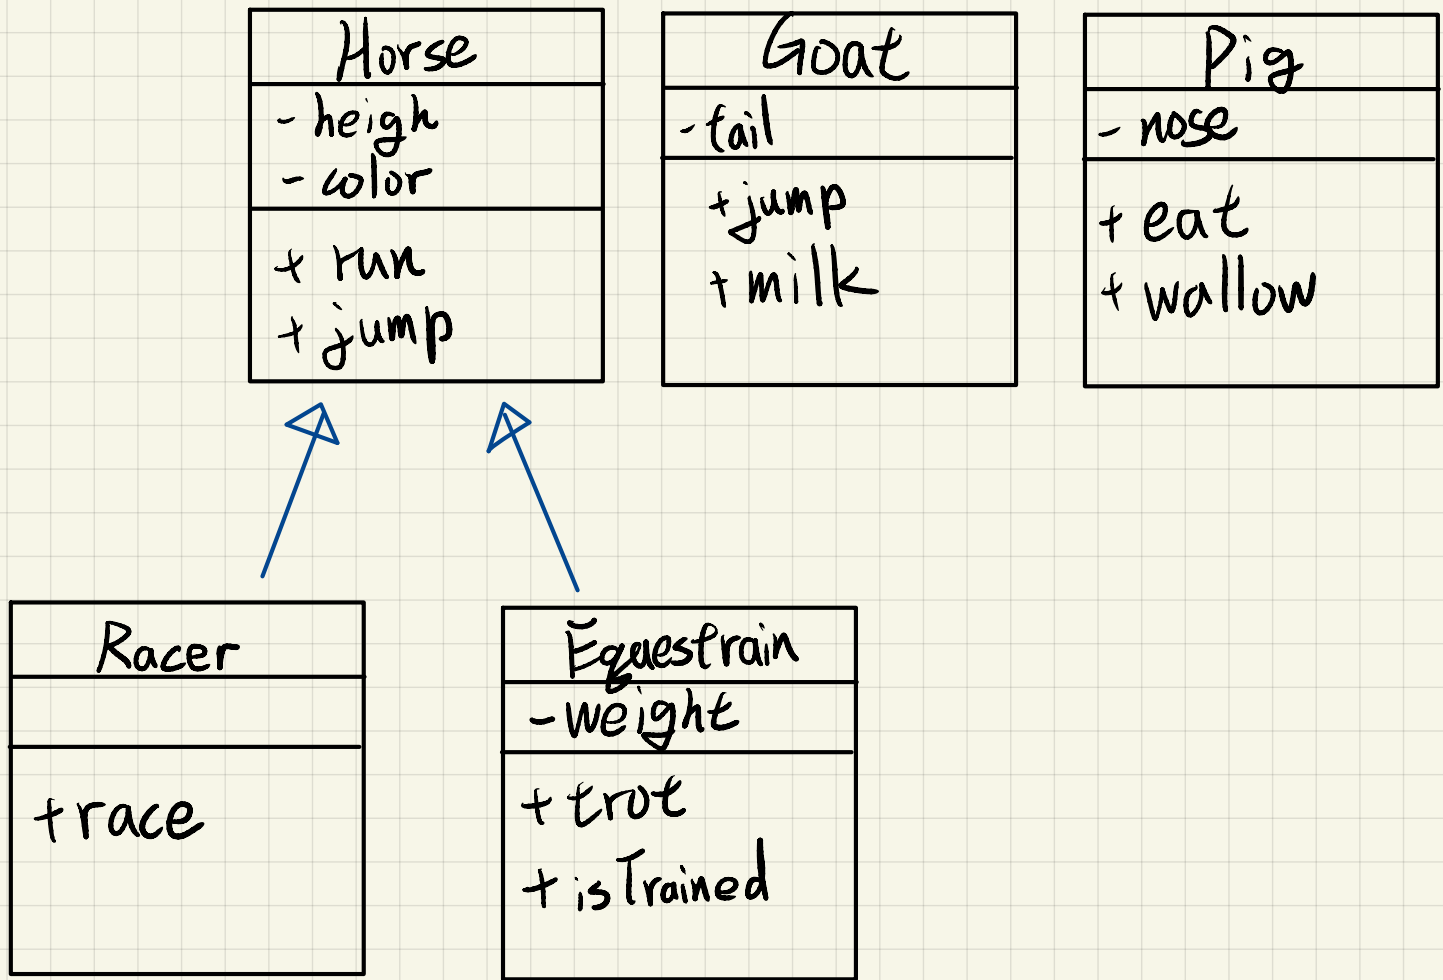 Horse
- heigh
- color
+ run
+ jump
Goat
- tail
+ jump
+ milk
Pig
- nose
+ eat
+ wallow
Racer
+ race
Equestrain
- weight
+ trot
+ isTrained